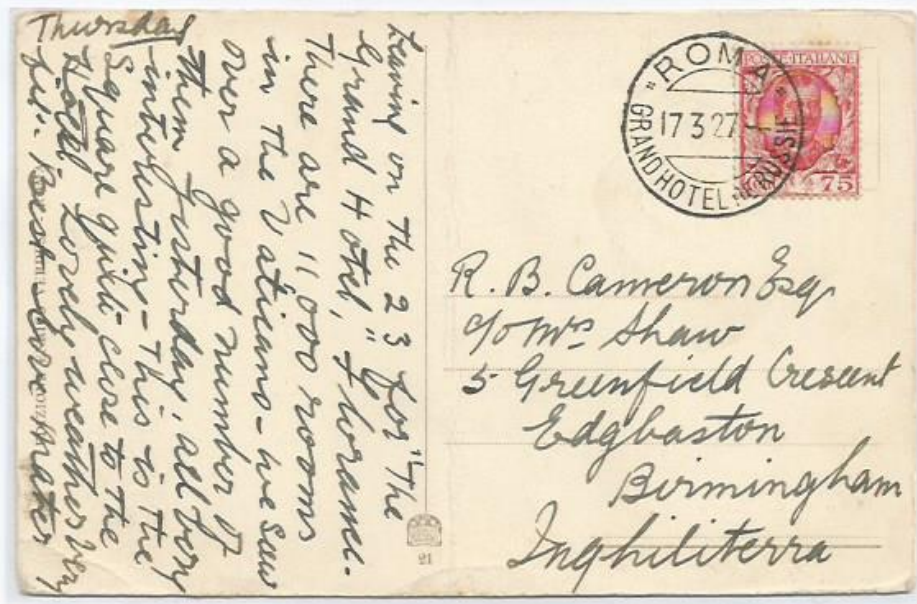 Thursday
Leaving on the 23 for "The
Grand Hotel," Florence.
There are 11,000 rooms
in the Vaticano - we saw
over a good number of
them yesterday, all very
interesting - This is the
Square quite close to the
Hotel Lovely weather very
Best Love
ROMA
17 3 27
GRAND HOTEL RUSSIE
POSTE ITALIANE
75
R. B. Cameron Esq.
c/o Mrs Shaw
5 Greenfield Crescent
Edgbaston
Birmingham
Inghiliterra
21